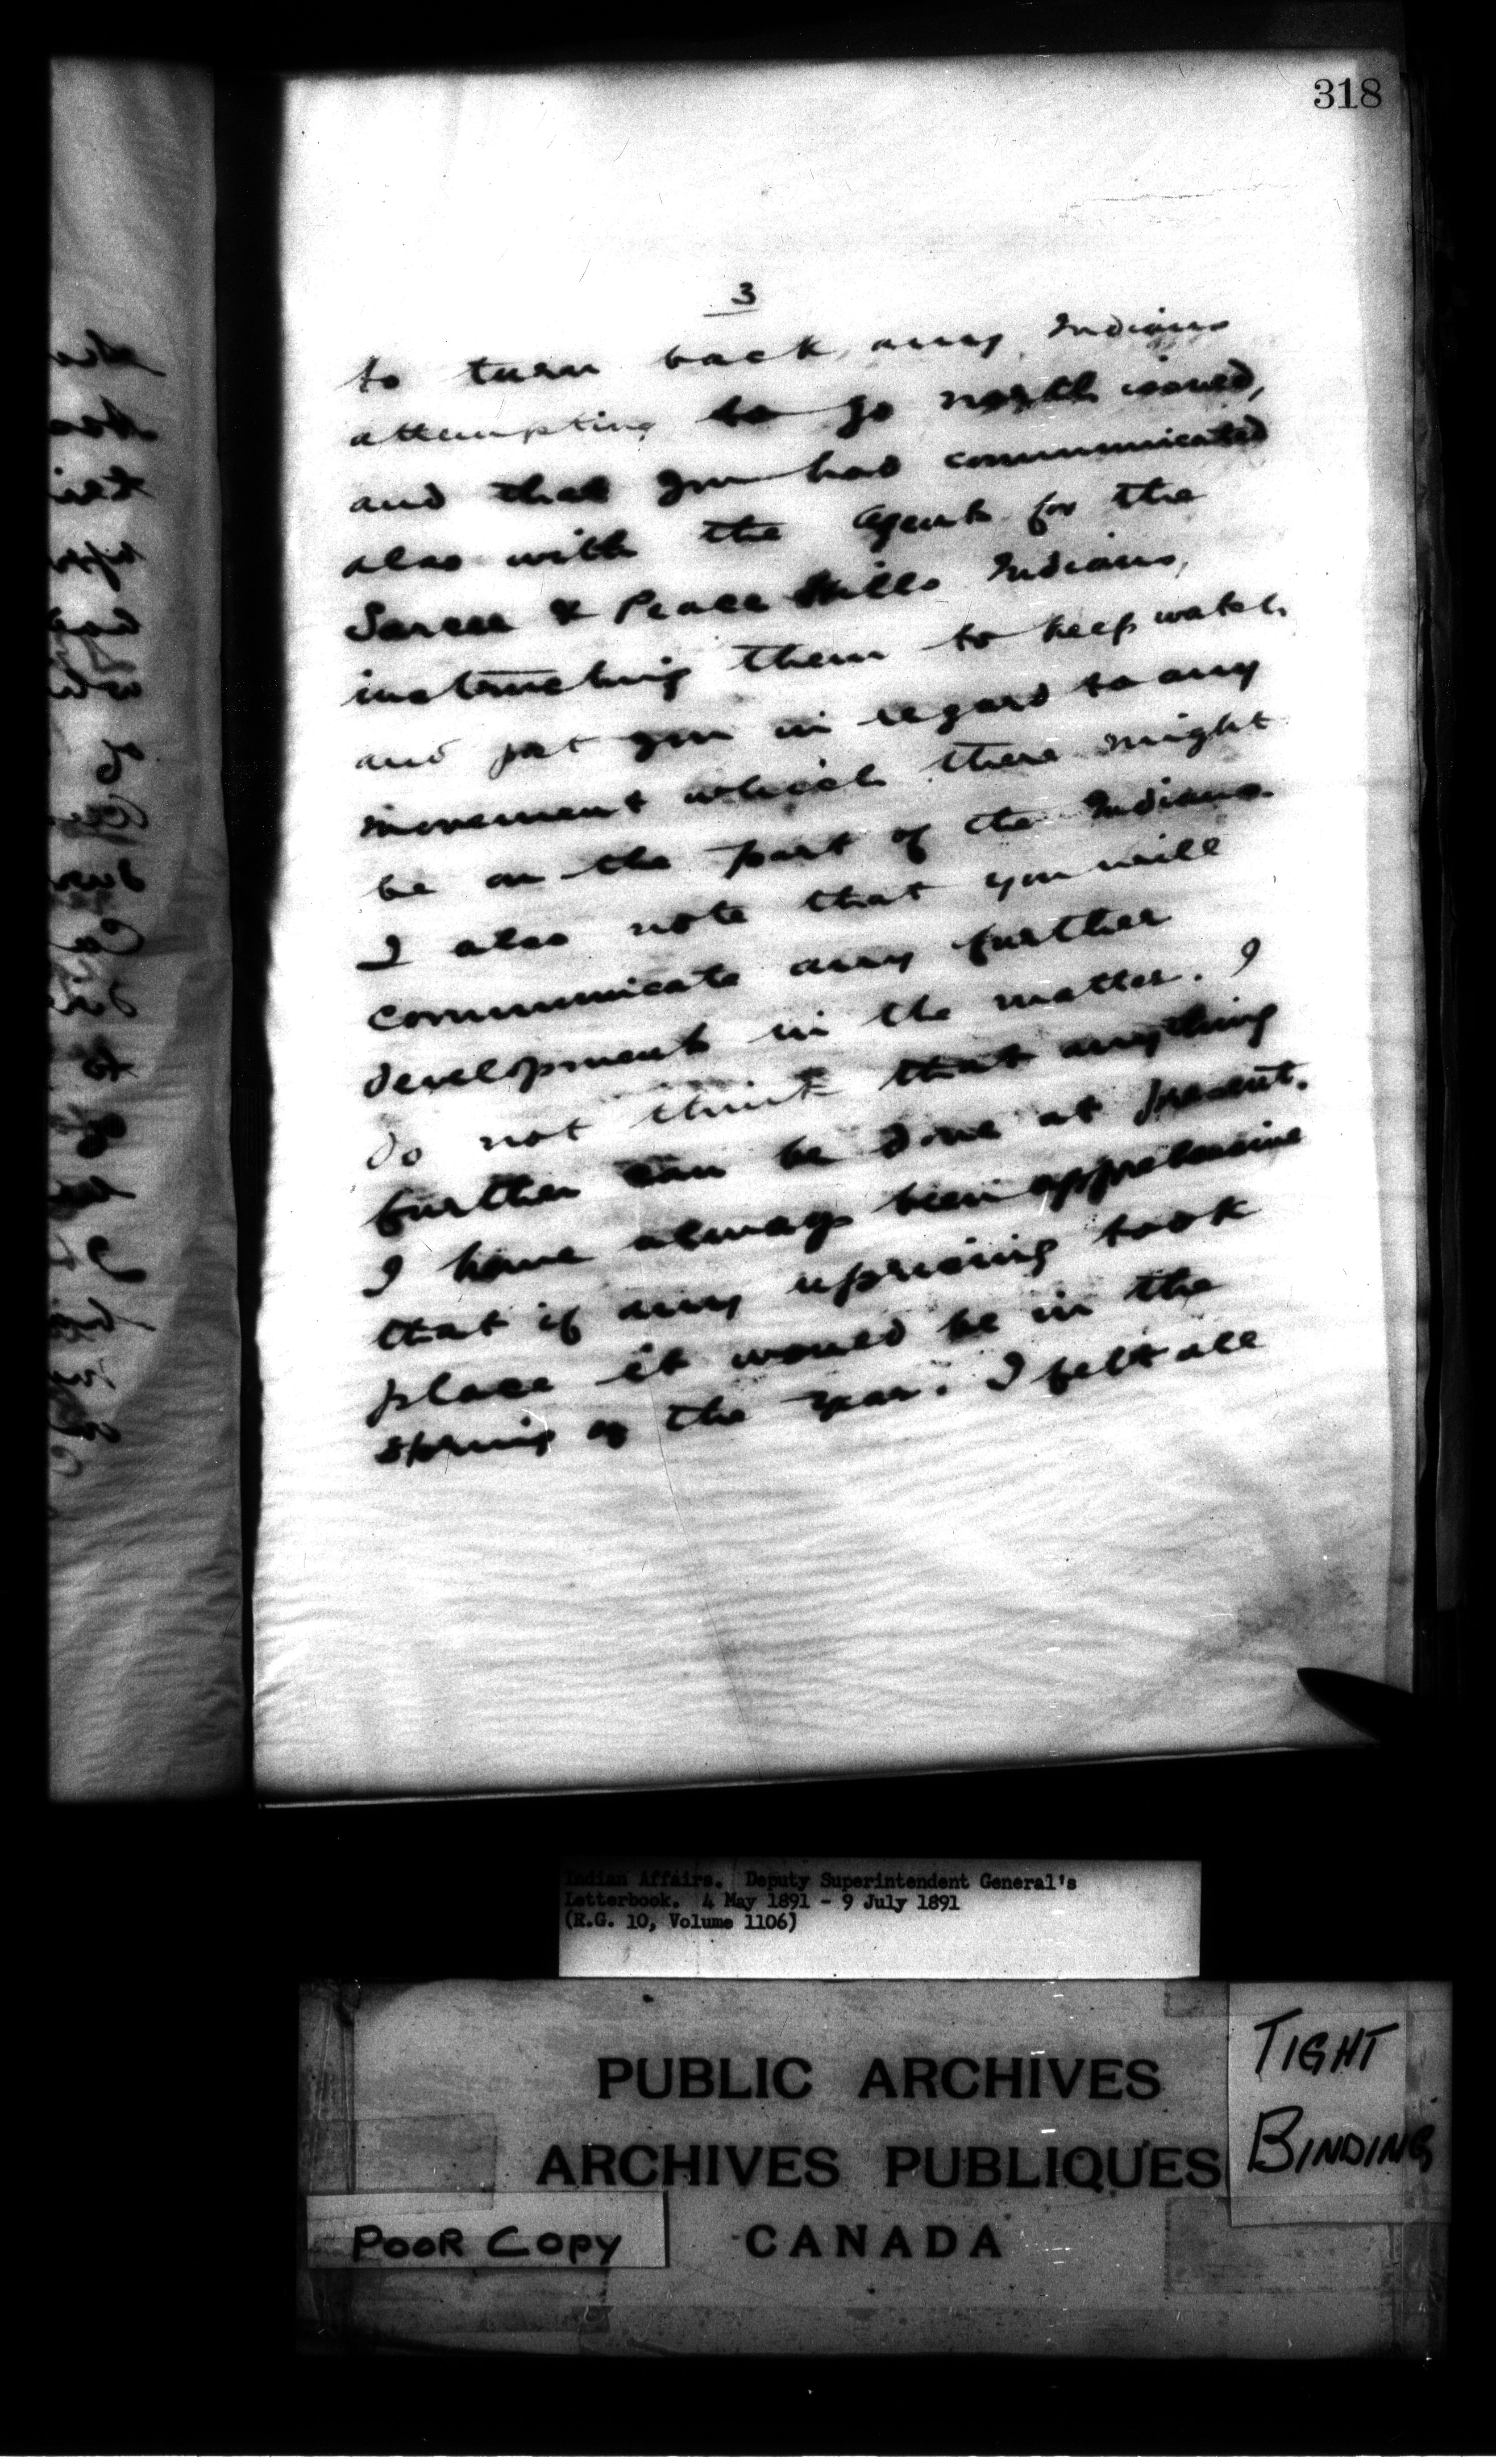 318
3
to turn back any Indians
attempting to go north issued,
and that you had communicated
also with the Agents for the
Sarcee & Peace Hills Indians,
instructing them to keep watch
and post you in regard to any
movement which there might
be on the part of the Indians.
I also note that you will
communicate any further
development in the matter. I
do not think that anything
further can be done at present.
I have always been apprehensive
that if any uprising took
place it would be in the
spring of the year. I felt all
Indian Affairs. Deputy Superintendent General's
Letterbook. 4 May 1891 - 9 July 1891
(R.G. 10, Volume 1106)
PUBLIC ARCHIVES
ARCHIVES PUBLIQUES
CANADA
TIGHT
BINDING
POOR COPY